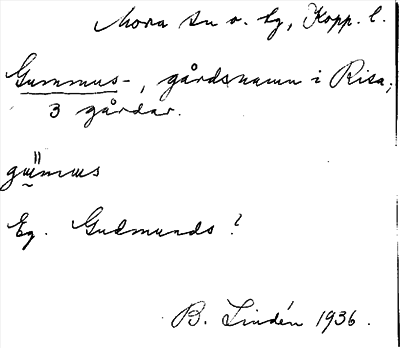 Mora sn o. tg, Kopp. l.
Gummus-, gårdsnamn i Risa,
3 gårdar.
Eg. Gudmunds?
B. Lindén 1936.